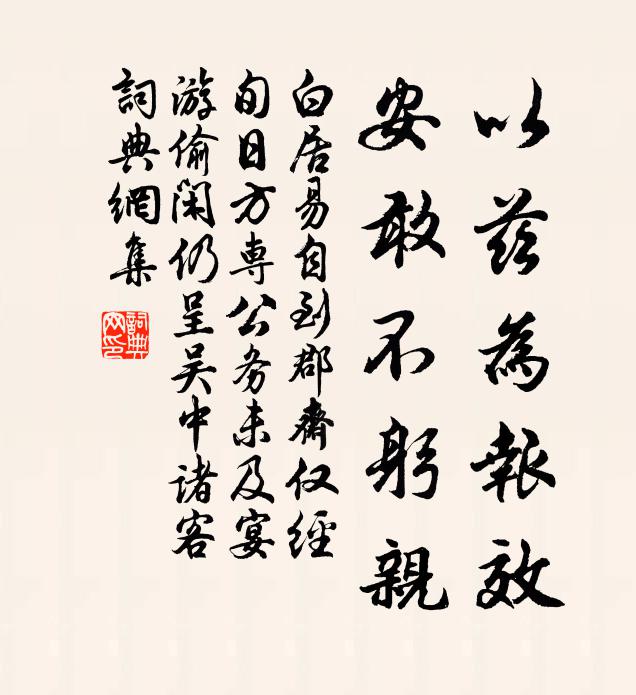 以茲為報效
安敢不躬親
白居易自到郡齋仅經
旬日方専公务未及宴
游偷闲仍呈吴中诸客
詞典網集
詞典网印